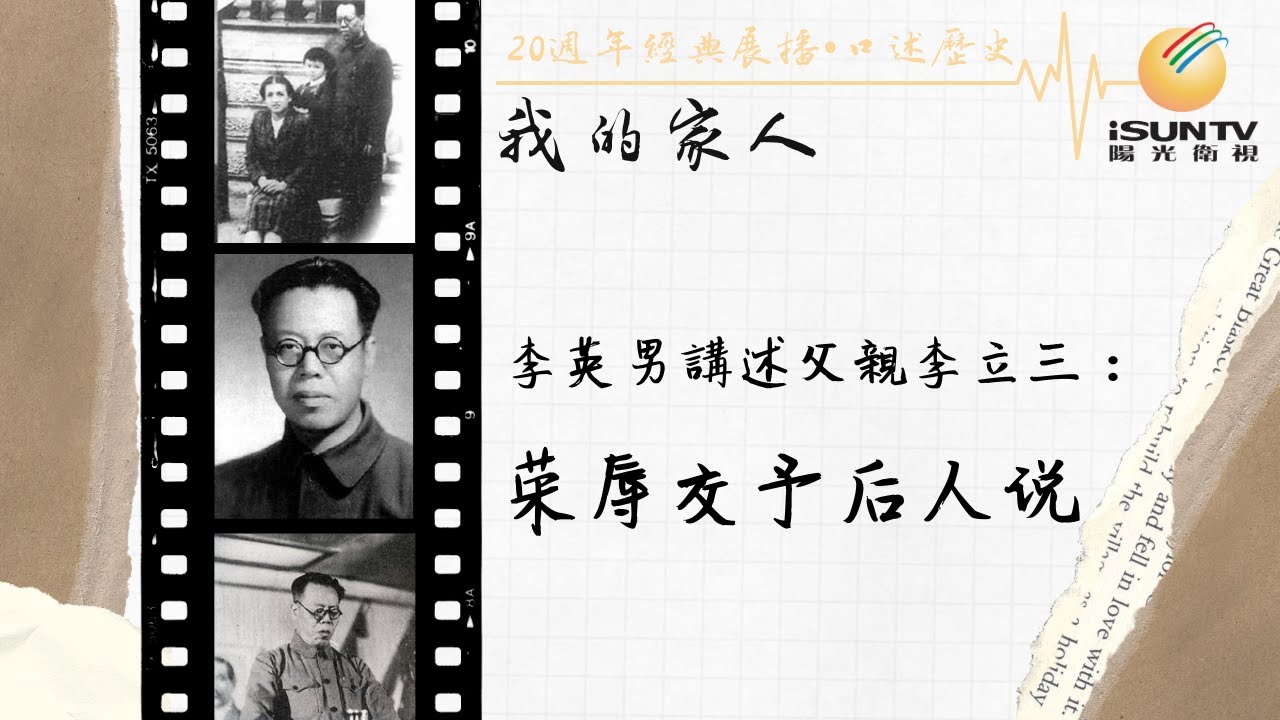 20週年經典展播•口述歷史
iSUNTV
陽光衛視
我的家人
李英男講述父親李立三：
荣辱交予后人说
TX 5063
10
9A
9
8A
Great blanket
rebuild the villa
and fell in love with it.
as a holiday